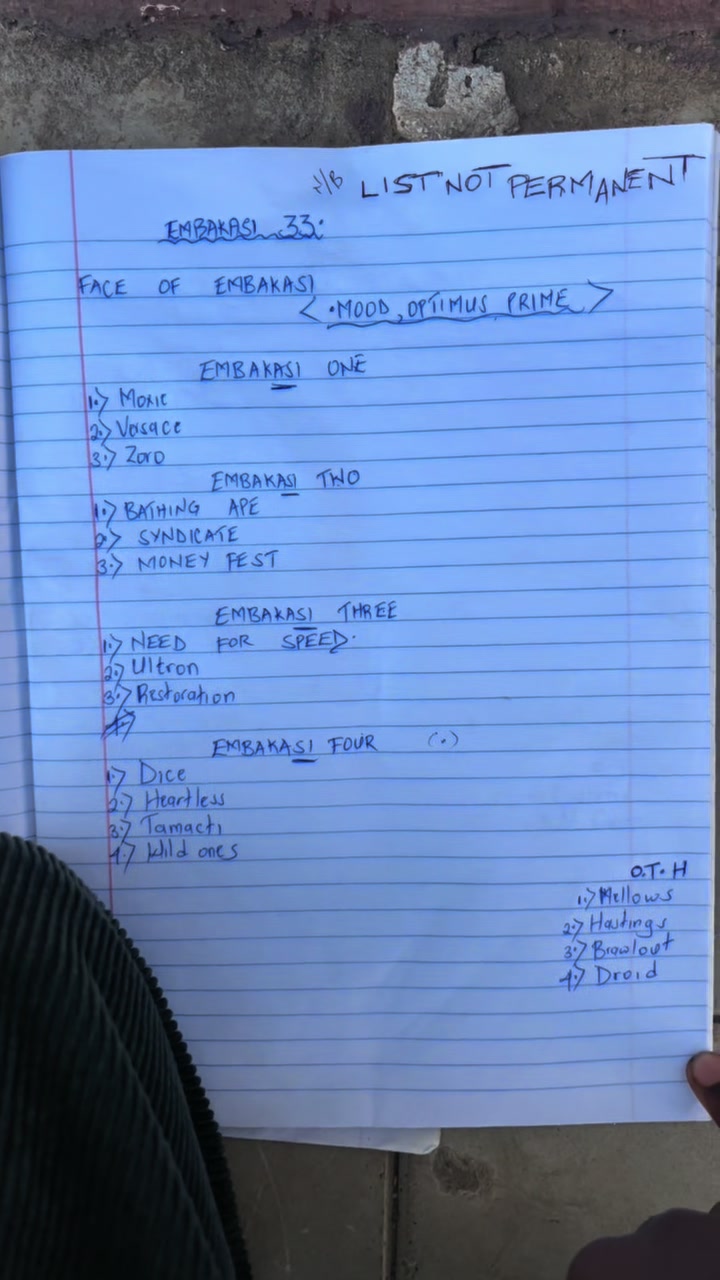 N/B LIST NOT PERMANENT
EMBAKASI 33:
FACE OF EMBAKASI
< •MOOD, OPTIMUS PRIME >
EMBAKASI ONE
1.> Moxie
2.> Vasace
3.> Zoro
EMBAKASI TWO
1.> BATHING APE
2.> SYNDICATE
3.> MONEY FEST
EMBAKASI THREE
1.> NEED FOR SPEED.
2.> Ultron
3.> Restoration
EMBAKASI FOUR (.)
1.> Dice
2.> Heartless
3.> Tamacti
4.> Wild ones
O.T.H
1.> Mellows
2.> Hastings
3.> Brawlout
4.> Droid